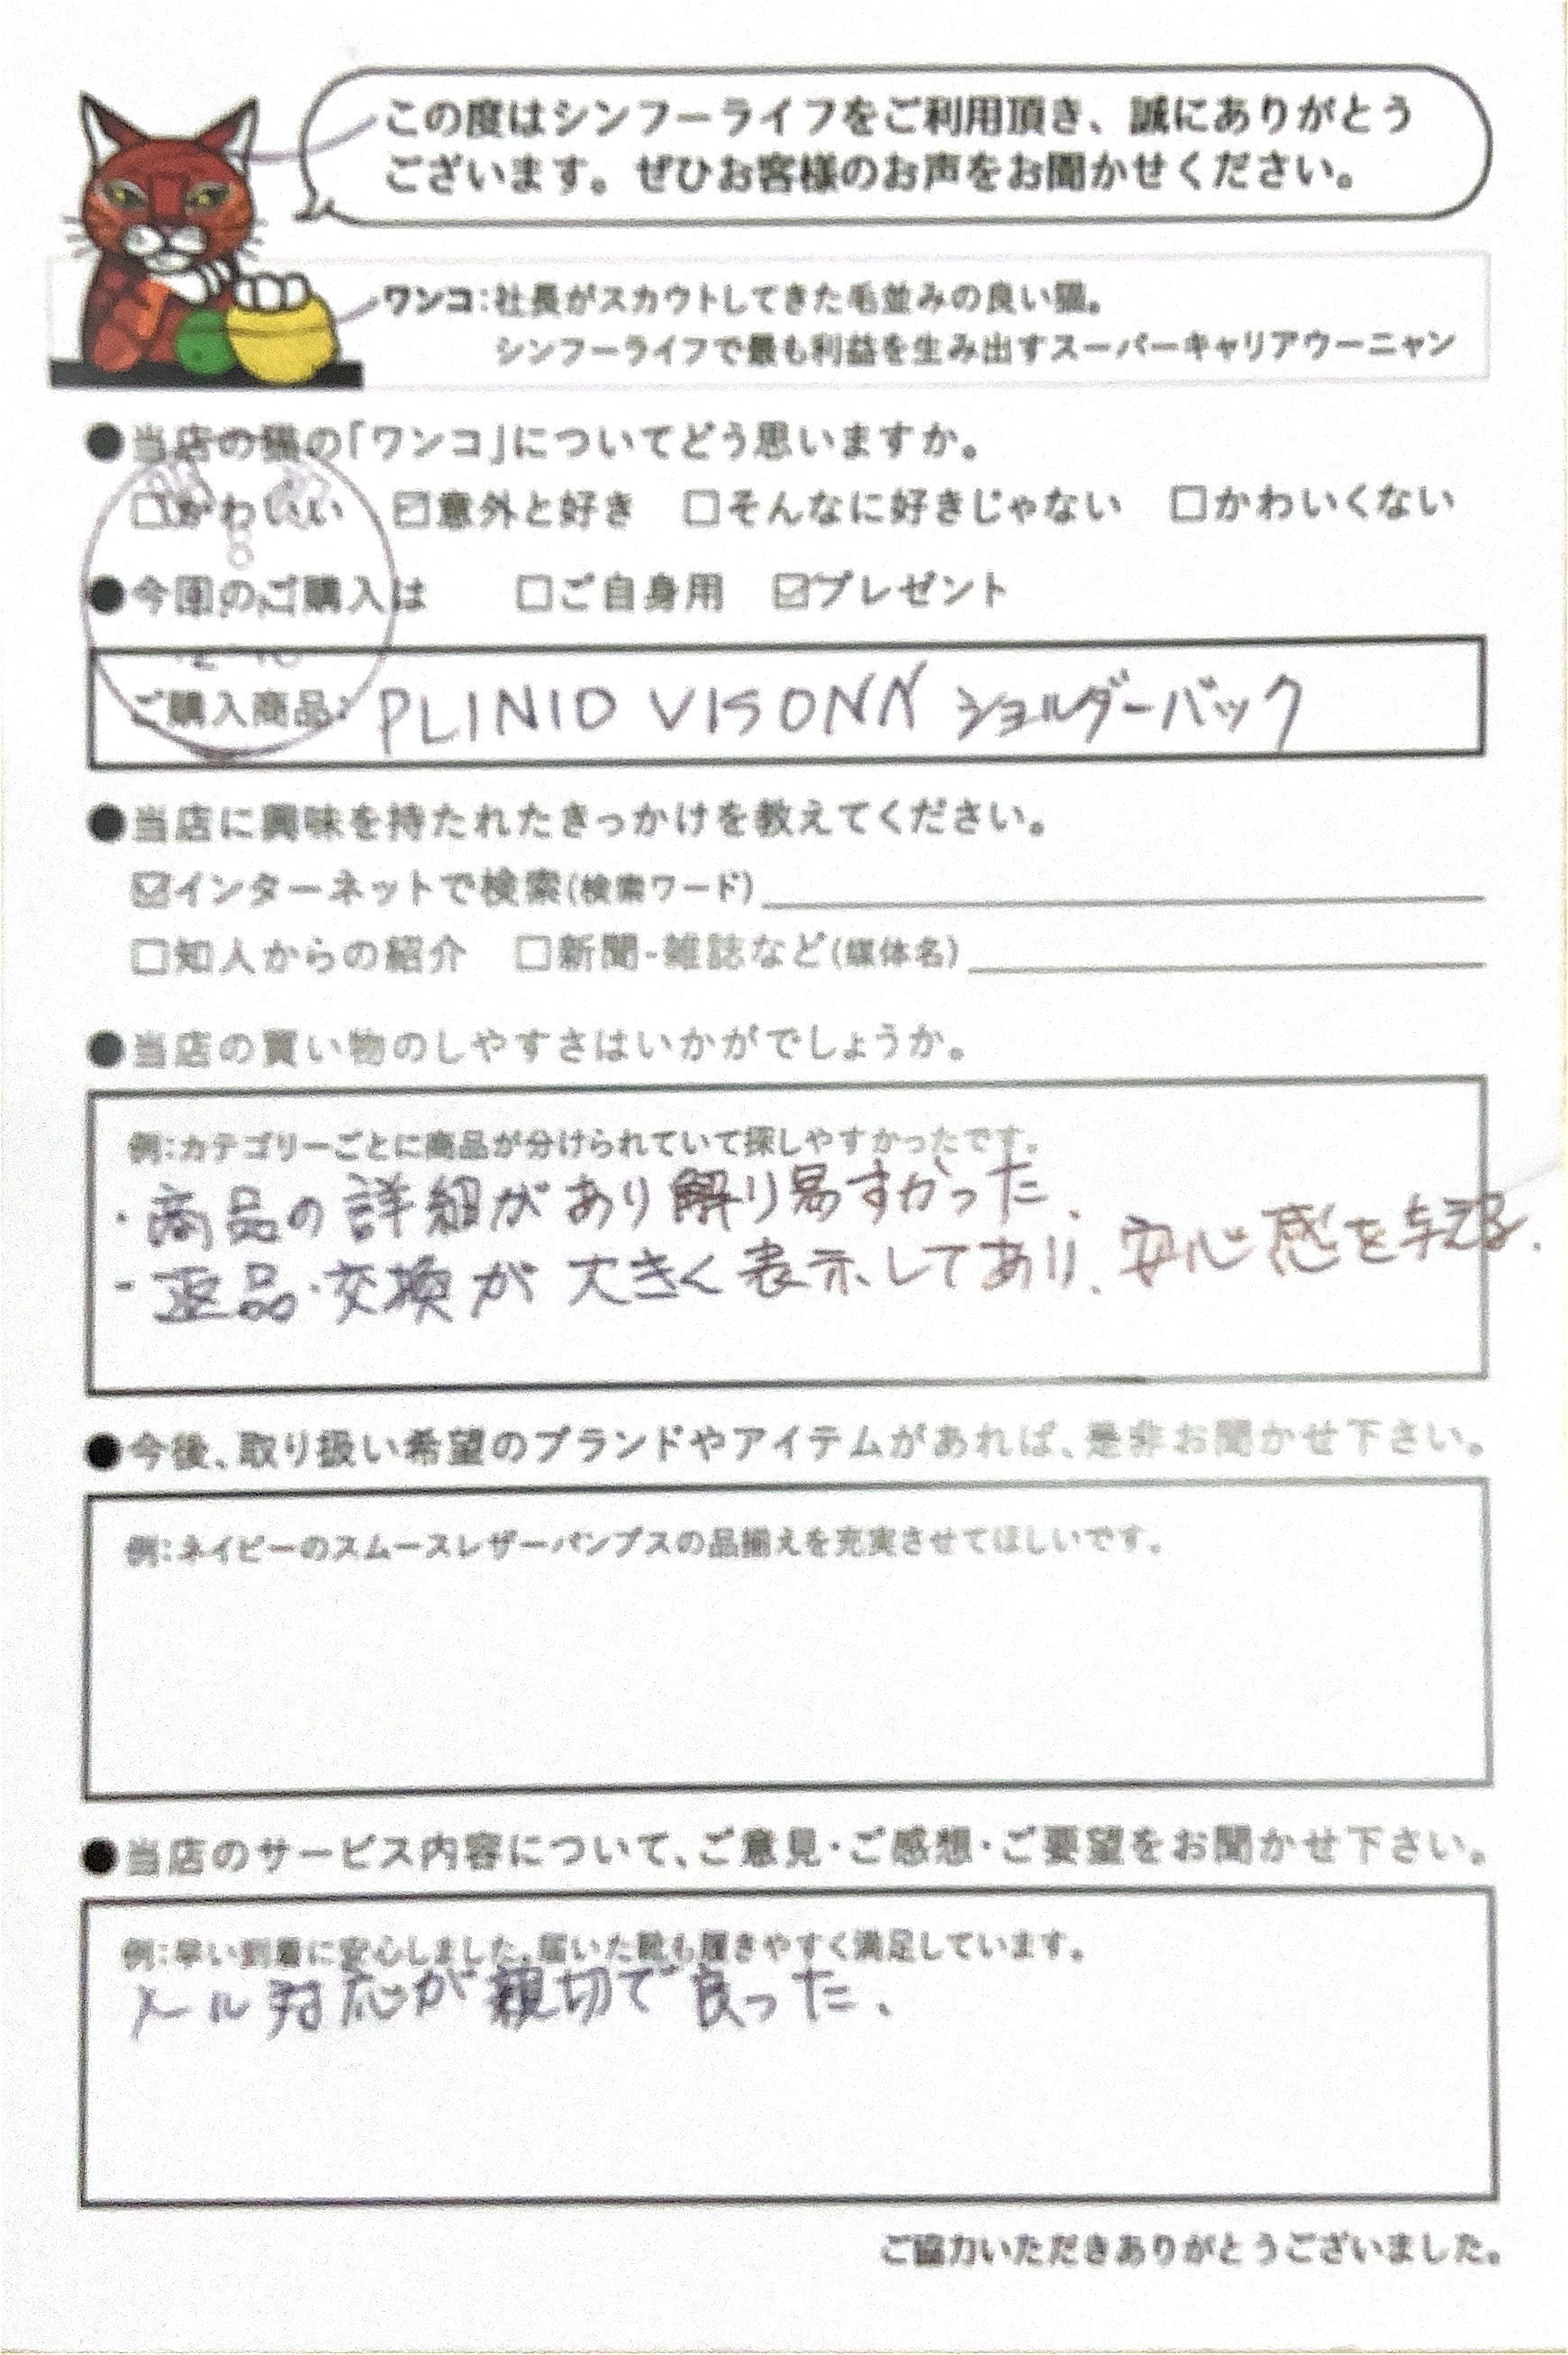 この度はシンフーライフをご利用頂き、誠にありがとう
ございます。ぜひお客様のお声をお聞かせください。
ワンコ:社長がスカウトしてきた毛並みの良い猫。
シンフーライフで最も利益を生み出すスーパーキャリアウーニャン
●当店の猫の「ワンコ」についてどう思いますか。
□かわいい ☑意外と好き □そんなに好きじゃない □かわいくない
8
●今回のご購入は □ご自身用 ☑プレゼント
ご購入商品: PLINIO VISONA ショルダーバック
●当店に興味を持たれたきっかけを教えてください。
☑インターネットで検索(検索ワード)
□知人からの紹介 □新聞・雑誌など(媒体名)
●当店の買い物のしやすさはいかがでしょうか。
例:カテゴリーごとに商品が分けられていて探しやすかったです。
・商品の詳細があり解り易すかった、
・返品・交換が大きく表示してあり、安心感を与える.
●今後、取り扱い希望のブランドやアイテムがあれば、是非お聞かせ下さい。
例:ネイビーのスムースレザーパンプスの品揃えを充実させてほしいです。
●当店のサービス内容について、ご意見・ご感想・ご要望をお聞かせ下さい。
例:早い到着に安心しました。届いた靴も履きやすく満足しています。
メール対応が親切で良った、
ご協力いただきありがとうございました。